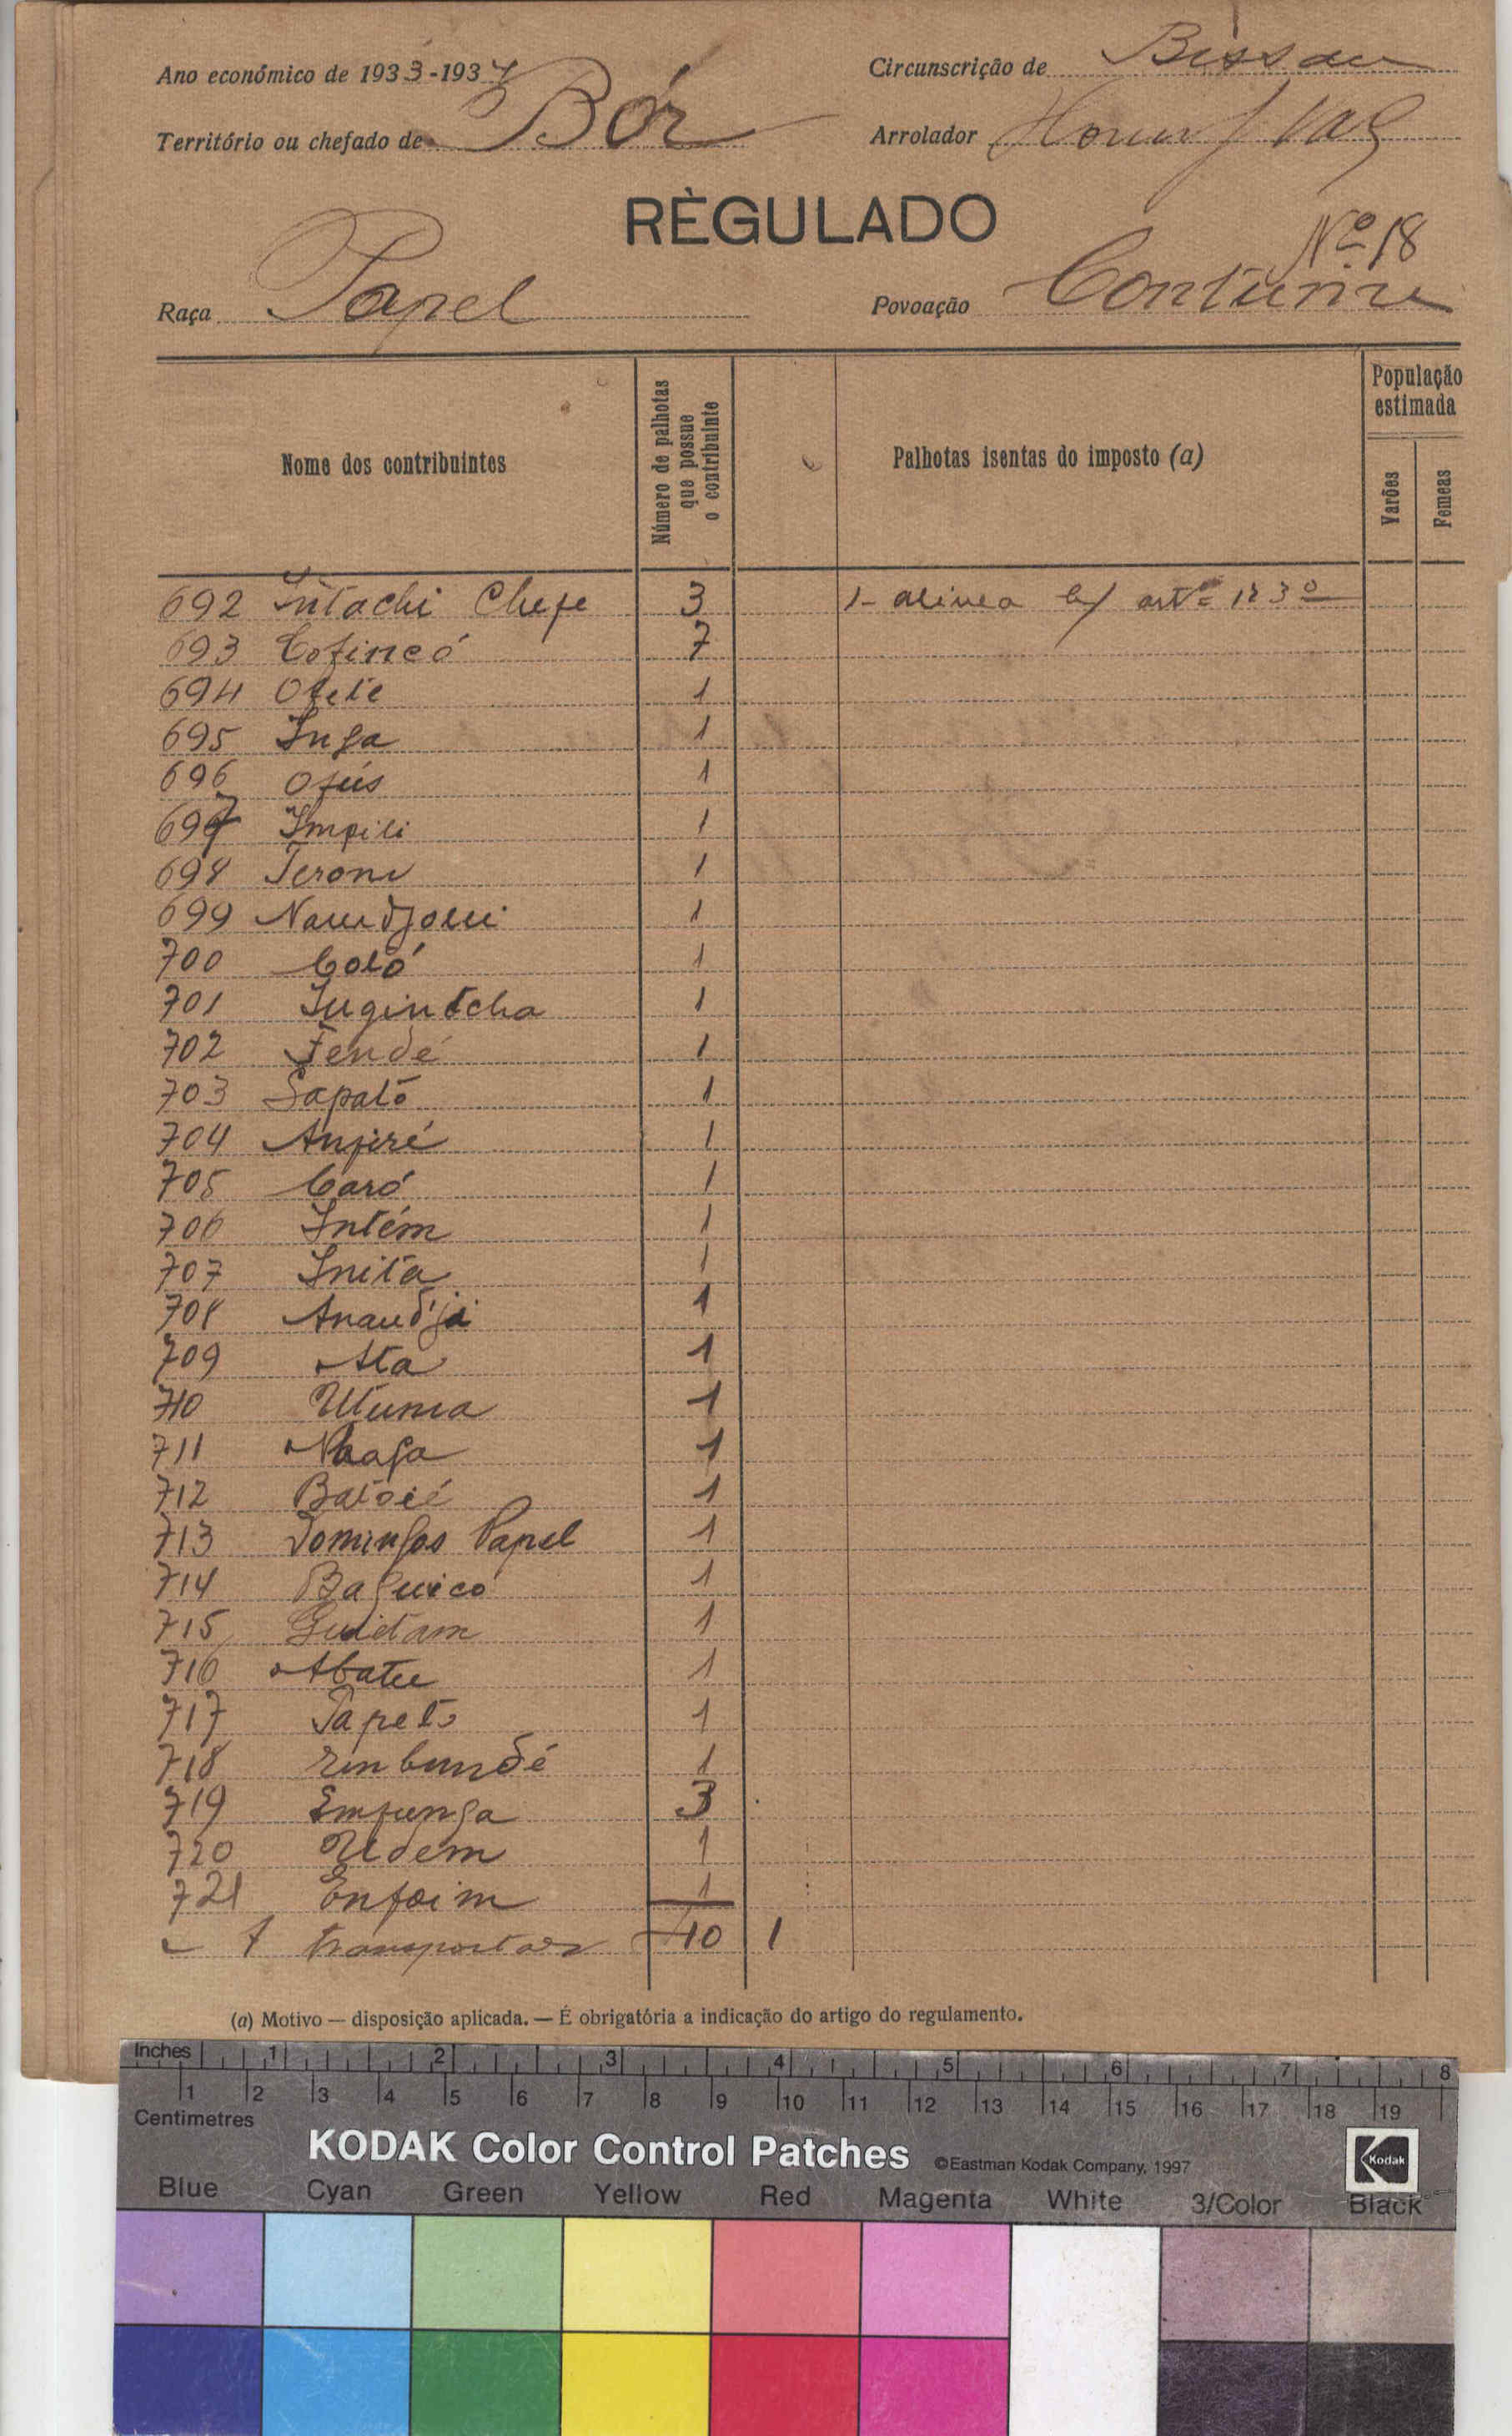 Ano económico de 1933-1934 Circunscrição de Bissau
Território ou chefado de Bór Arrolador Vaz
RÈGULADO
Nº 18
Raça Papel Povoação Contume
Nome dos contribuintes Número de palhotas que possue o contribuinte Palhotas isentas do imposto (a) População estimada Varões Femeas
692 Intachi Chefe 3 1- alinea b/ artº 123º
693 Cofincó 7
694 Ofete 1
695 Inga 1
696 Ofús 1
697 Impili 1
698 Jeroni 1
699 1
700 Coló 1
701 Sugintcha 1
702 Fendé 1
703 Sapató 1
704 Anfiré 1
705 Caró 1
706 Intém 1
707 Inita 1
708 Anandja 1
709 Ata 1
710 Utuma 1
711 Naga 1
712 Batoié 1
713 Domingos Papel 1
714 Baguico 1
715 Guidam 1
716 Abatu 1
717 Papeto 1
718 Rimbundé 1
719 Emfunga 3
720 Udem 1
721 Enfoim 1
A transportar 40 1
(a) Motivo — disposição aplicada. — É obrigatória a indicação do artigo do regulamento.
Inches 1 2 3 4 5 6 7 8
1 2 3 4 5 6 7 8 9 10 11 12 13 14 15 16 17 18 19
Centimetres
KODAK Color Control Patches ©Eastman Kodak Company, 1997 Kodak
Blue Cyan Green Yellow Red Magenta White 3/Color Black